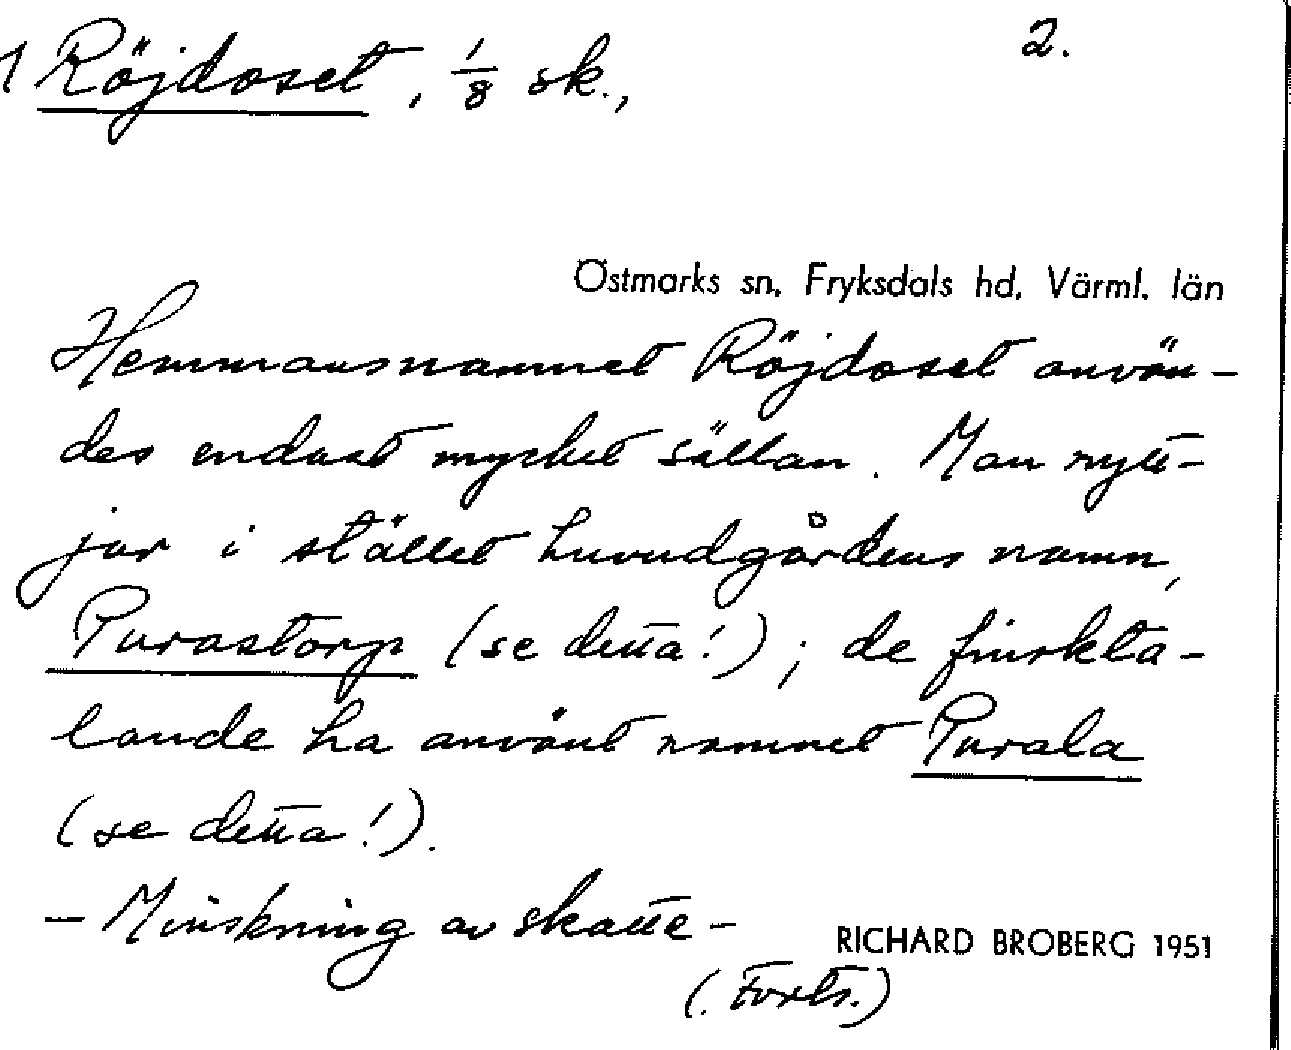 1 Röjdoset, 1/8 sk., 2.
Östmarks sn, Fryksdals hd, Värml. län
Hemmansnamnet Röjdoset använ-
des endast mycket sällan. Man nytt-
jar i stället huvudgårdens namn,
Purastorp (se detta!); de finskta-
lande ha använt namnet Purala
(se detta!).
- Minskning av skatte-
RICHARD BROBERG 1951
(. Forts.)